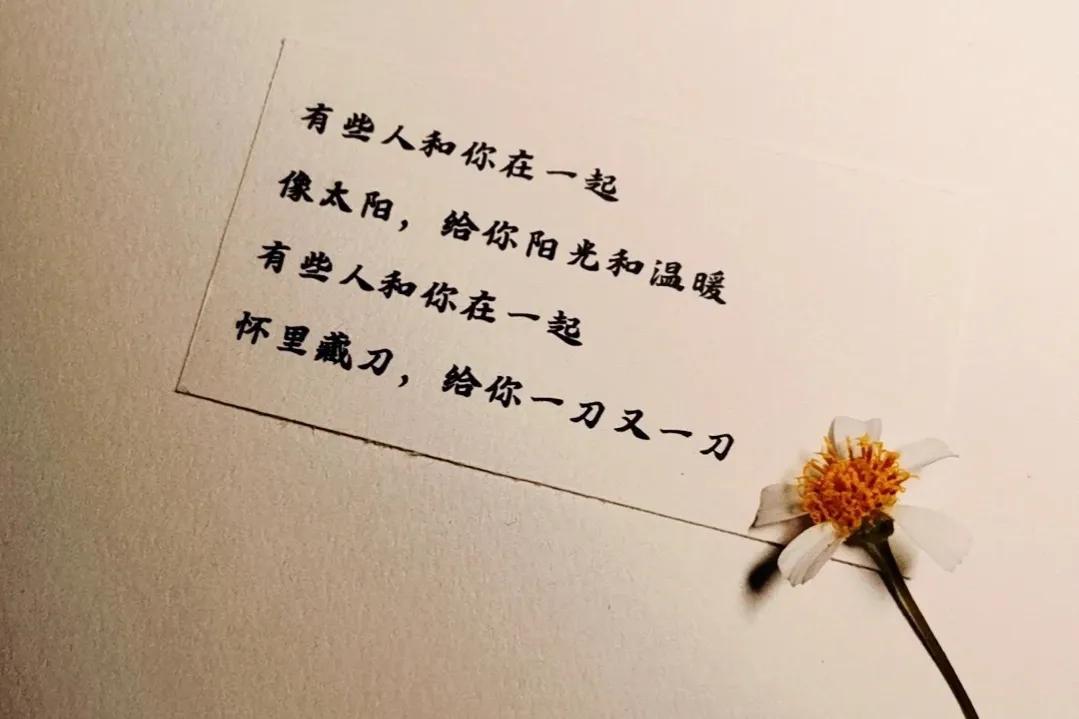 有些人和你在一起
像太阳，给你阳光和温暖
有些人和你在一起
怀里藏刀，给你一刀又一刀